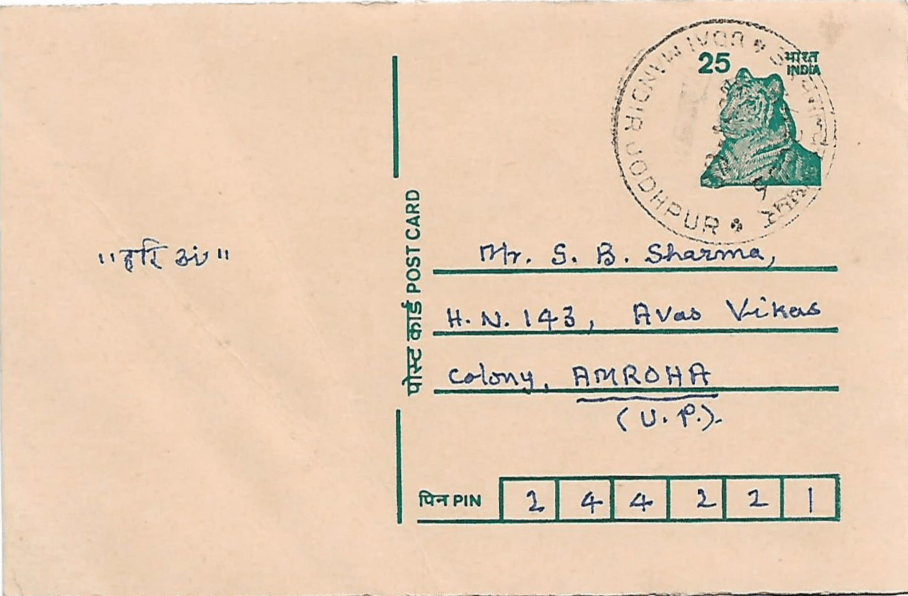 25 भारत
INDIA
UDAI MANDIR JODHPUR
पोस्ट कार्ड POST CARD
"हरि ॐ"
Mr. S. B. Sharma,
H. N. 143, Avas Vikas
Colony, AMROHA
(U. P.).
पिन PIN 2 4 4 2 2 1